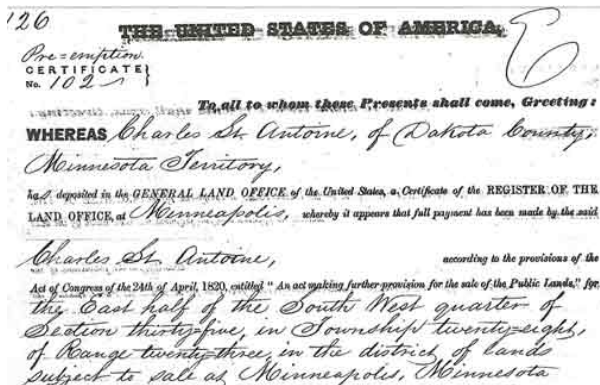 126
THE UNITED STATES OF AMERICA,
Pre=emption
CERTIFICATE
No. 102
To all to whom these Presents shall come, Greeting:
WHEREAS Charles St. Antoine, of Dakota County,
Minnesota Territory,
has deposited in the GENERAL LAND OFFICE of the United States, a Certificate of the REGISTER OF THE
LAND OFFICE, at Minneapolis, whereby it appears that full payment has been made by the said
Charles St. Antoine, according to the provisions of the
Act of Congress of the 24th of April, 1820, entitled "An act making further provision for the sale of the Public Lands," for
the East half of the South West quarter of
Section thirty=five, in Township twenty=eight,
of Range twenty=three, in the district of lands
subject to sale at Minneapolis, Minnesota